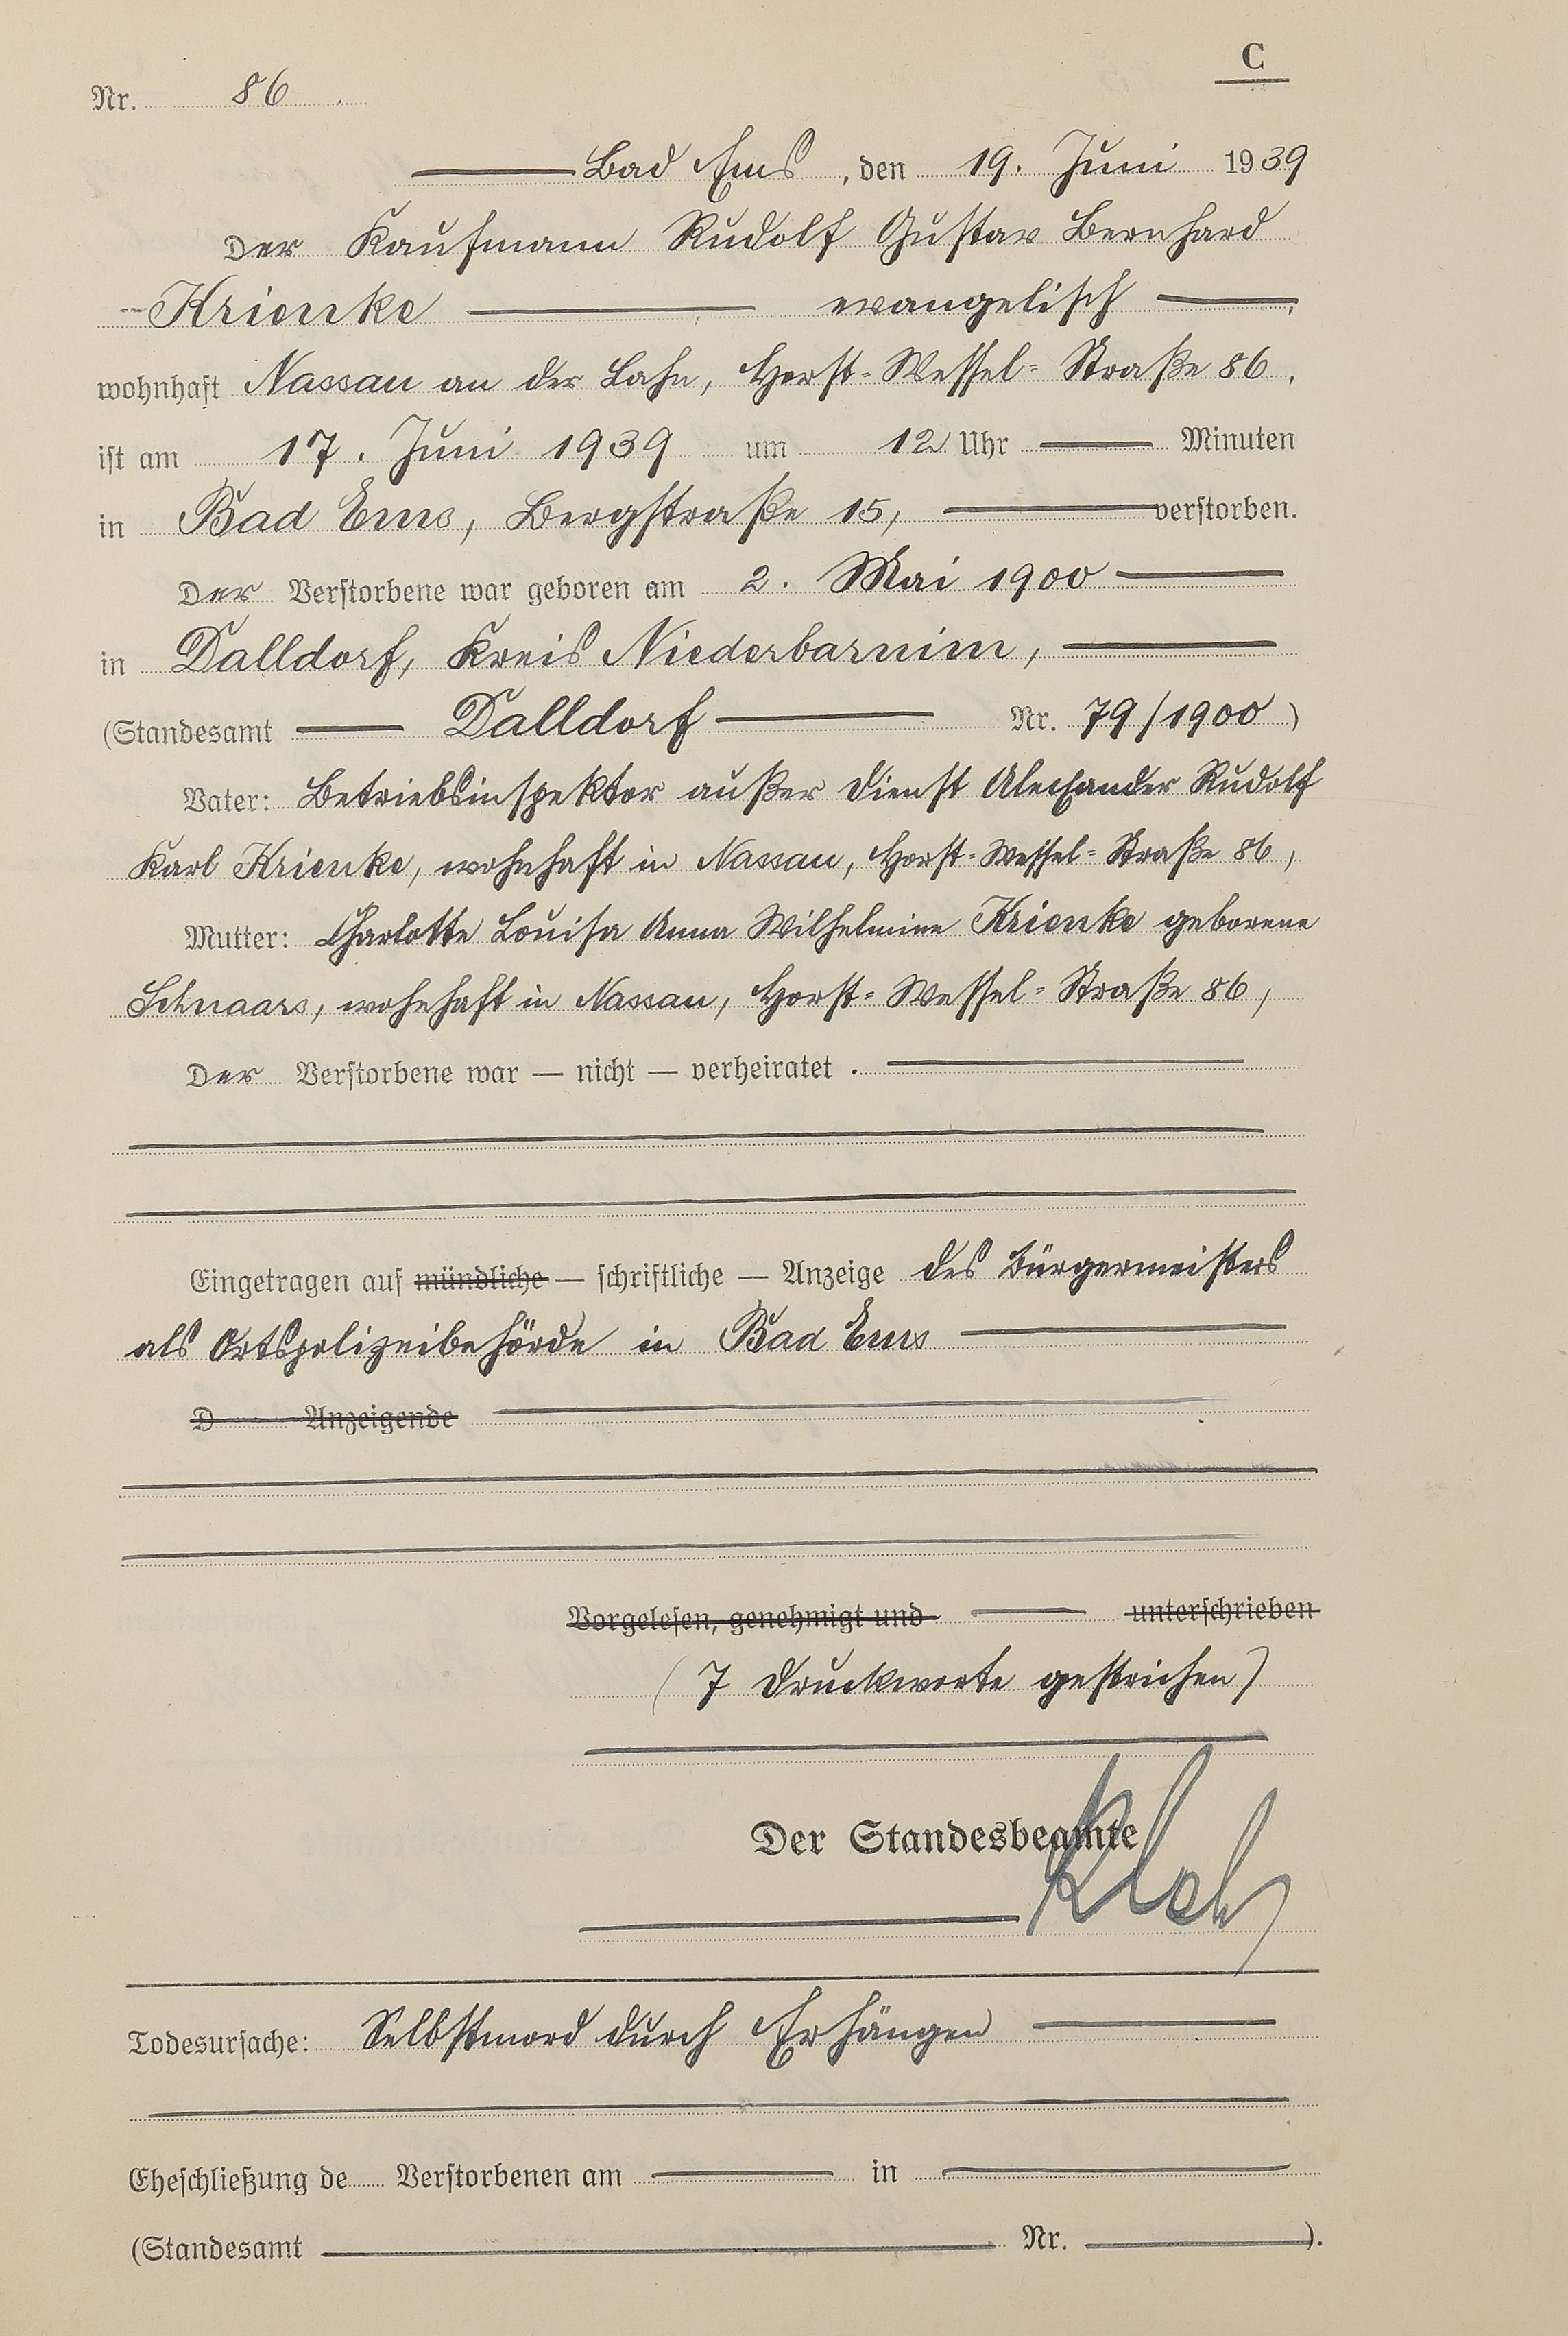 C
Nr. 86
Bad Ems, den 19. Juni 1939
Der Kaufmann Rudolf Gustav Bernhard
Krienke evangelisch
wohnhaft Nassau an der Lahn, Horst-Wessel-Straße 86,
ist am 17. Juni 1939 um 12 Uhr Minuten
in Bad Ems, Bergstraße 15, verstorben.
Der Verstorbene war geboren am 2. Mai 1900
in Dalldorf, Kreis Niederbarnim,
(Standesamt Dalldorf Nr. 79/1900)
Vater: Betriebsinspektor außer Dienst Alexander Rudolf
Karl Krienke, wohnhaft in Nassau, Horst-Wessel-Straße 86,
Mutter: Charlotte Louisa Anna Wilhelmine Krienke geborene
Schnaars, wohnhaft in Nassau, Horst-Wessel-Straße 86,
Der Verstorbene war — nicht — verheiratet.
Eingetragen auf mündliche — schriftliche — Anzeige des Bürgermeisters
als Ortspolizeibehörde in Bad Ems
D Anzeigende
Vorgelesen, genehmigt und unterschrieben
(7 Druckworte gestrichen)
Der Standesbeamte
Todesursache: Selbstmord durch Erhängen
Eheschließung de Verstorbenen am in
(Standesamt Nr. ).